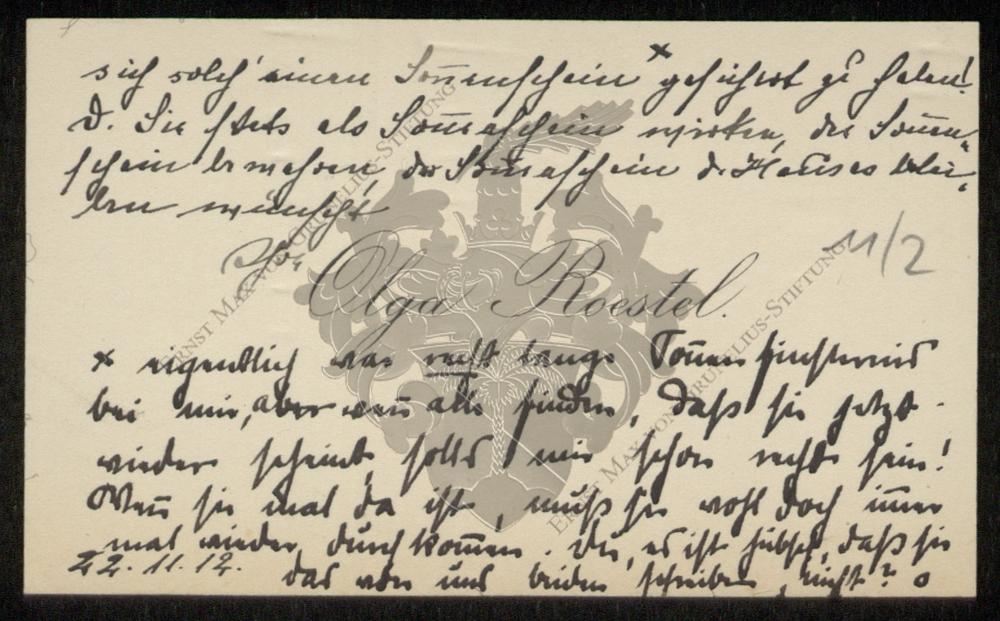 sich solch' einen Sonnenschein × gesichert zu haben!
D. Sie stets als Sonnenschein wirken, den Sonnen-
schein bewahren, der Sonnenschein d. Hauses blei-
ben wünscht
Ihre
Olga Roestel.
11/2
× eigentlich war recht lange Sonnenfinsternis
bei mir, aber wenn alle finden, daß sie jetzt
wieder scheint, solls mir schon recht sein!
Wenn sie mal da ist, muß sie wohl doch immer
mal wieder durchkommen. Du, es ist hübsch, daß sie
22.11.12.
das von uns beiden schreiben, nicht?
ERNST MAX VON GRUNELIUS-STIFTUNG
ERNST MAX VON GRUNELIUS-STIFTUNG